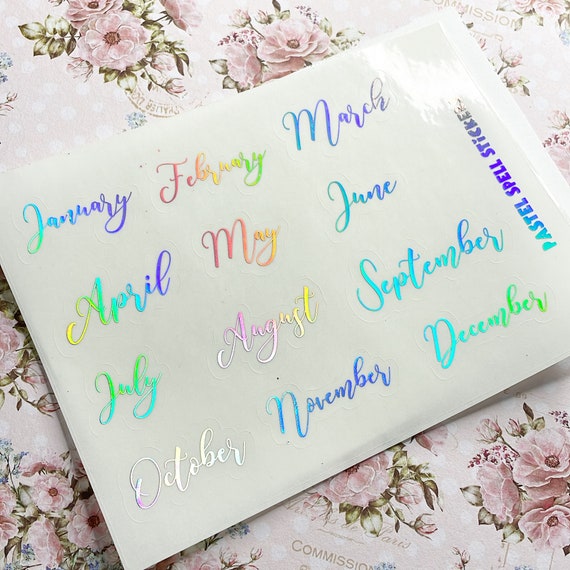 COMMISSION
January
February
March
April
May
June
July
August
September
October
November
December
PASTEL SPELL STICKE
COMMISSION